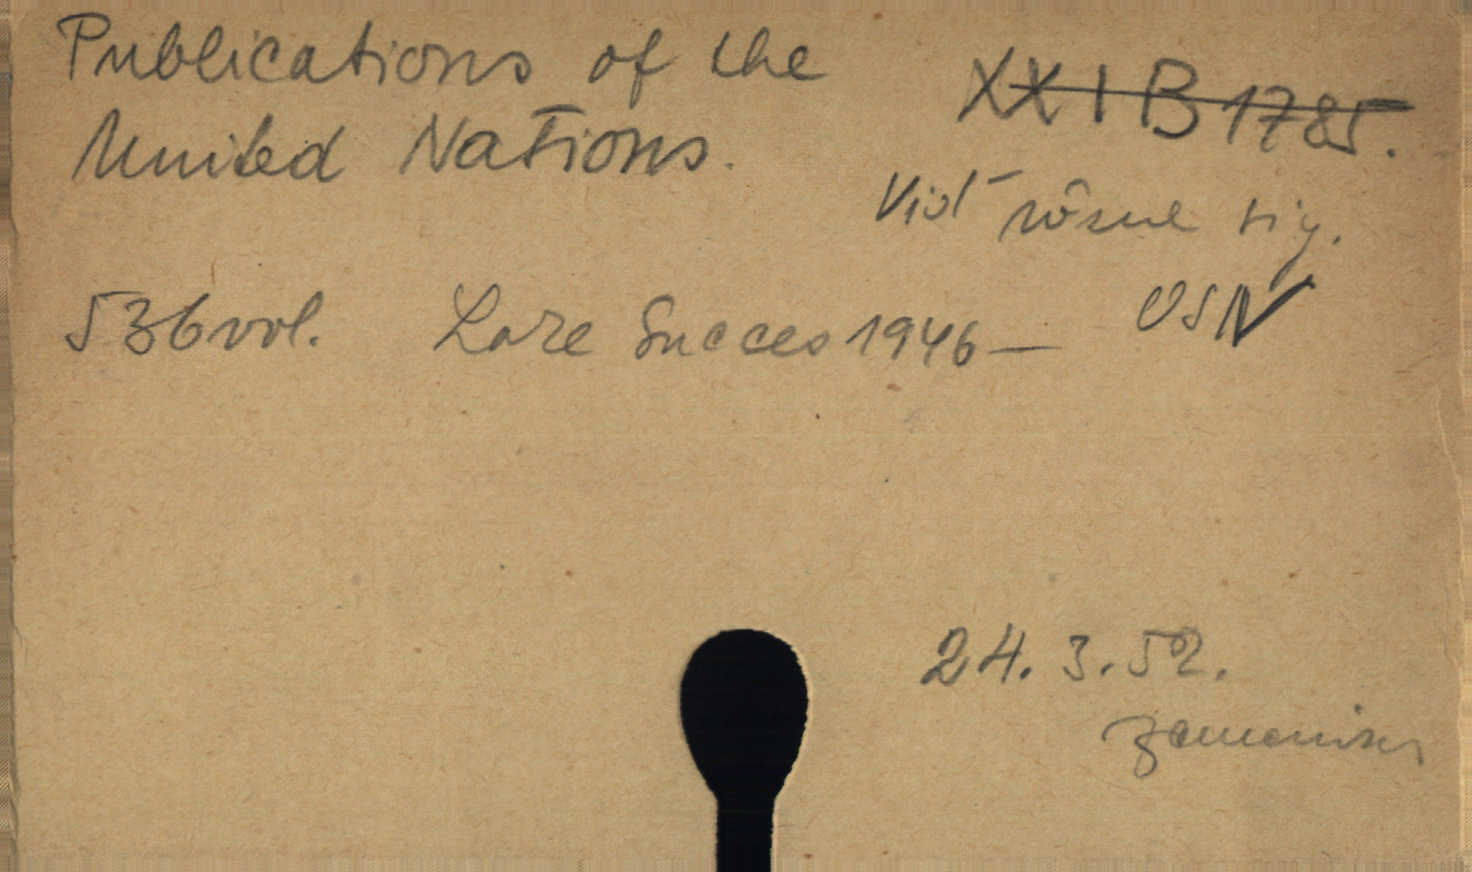 Publications of the
United Nations.
XXI B 1785.
Vid rôzne sig.
OSN
536 vol. Lake Succes 1946 —
24. 3. 52.